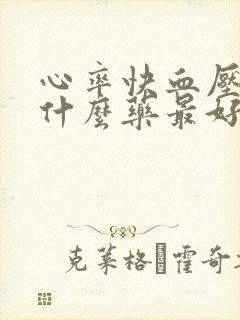 心率快血壓
什麼藥最好
克萊格·霍奇